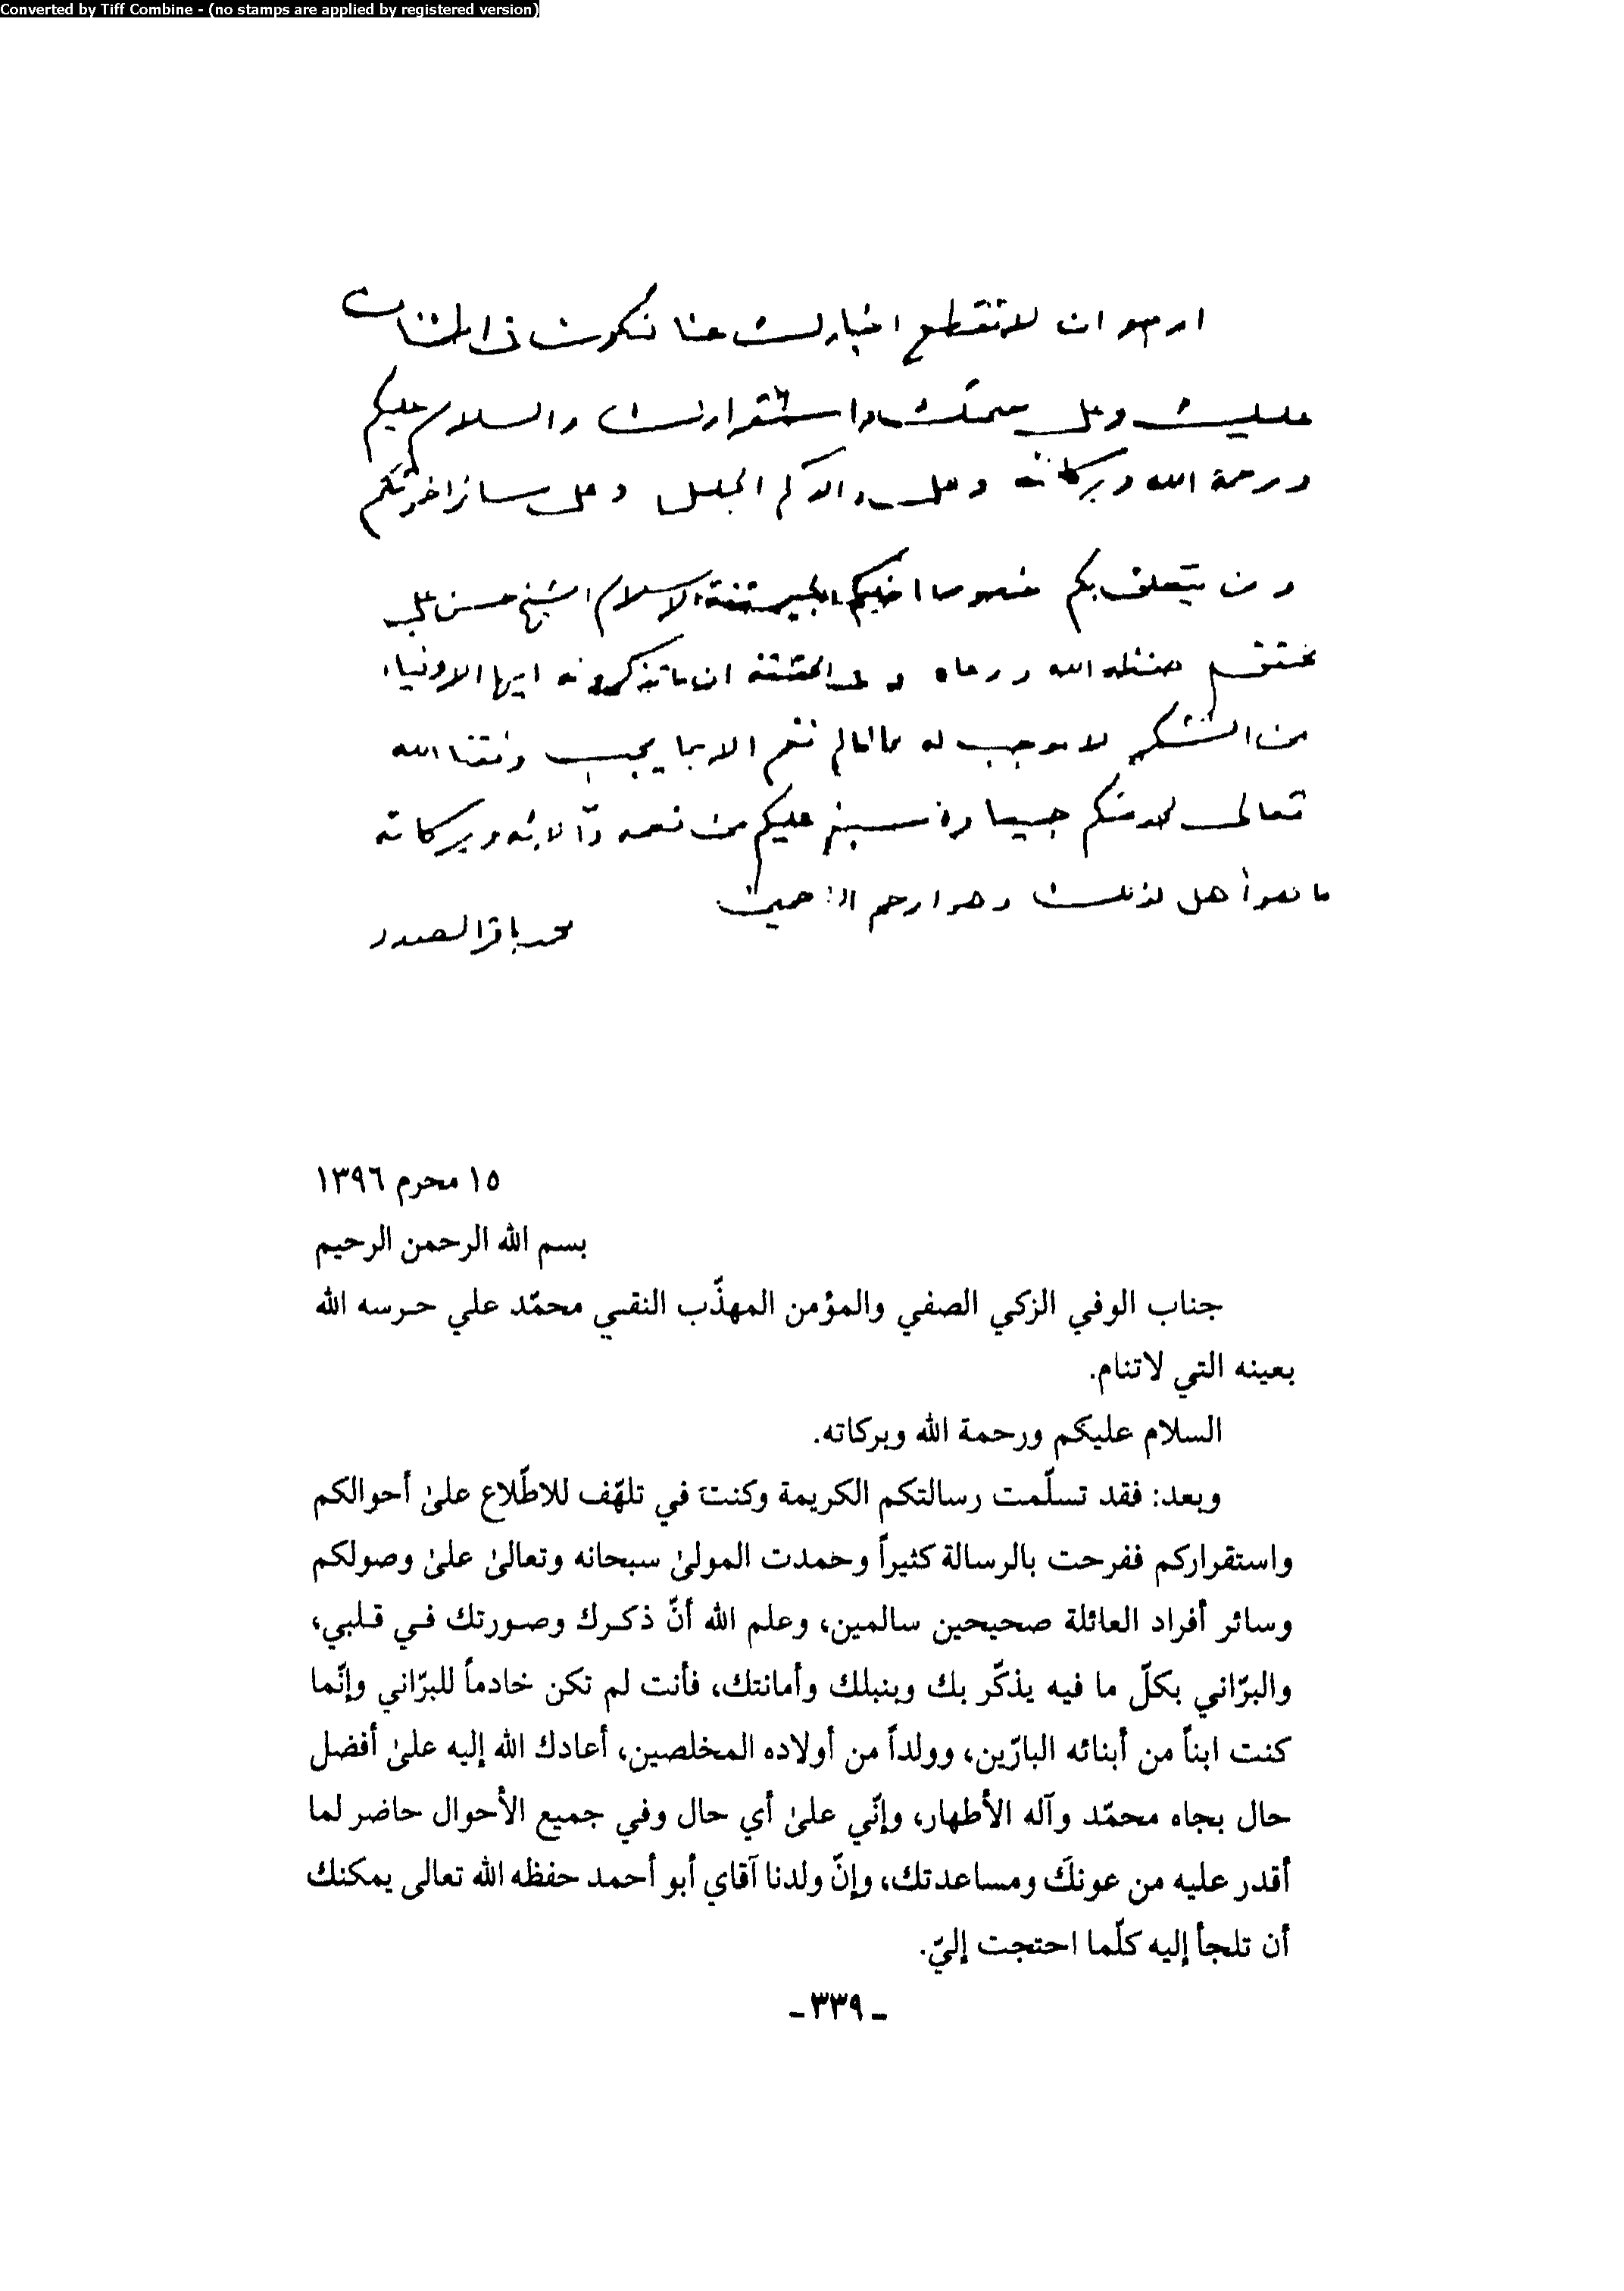 Converted by Tiff Combine - (no stamps are applied by registered version)
ارجو ان لا تنقطع اخبارك عنا لنكون في اطمئنان
عليك وعلى صحتك واستقرارك والسلام عليكم
ورحمة الله وبركاته وعلى والدكم الجليل وعلى سائر اخوتكم
ومن يتعلق بكم خصوصا اخيكم الكبير ثقة الاسلام الشيخ حسن علي
حفظه الله ورعاه وفي الحقيقة ان ما تذكرونه ايها الاوفياء
من الشكر لا موجب له فاننا لم نقم الا بما يجب وفقنا الله
تعالى لخدمتكم جميعا وسبغ عليكم من نعمه وآلائه وبركاته
ما هو أهل لذلك وهو ارحم الراحمين
محمد باقر الصدر
١٥ محرم ١٣٩٦
بسم الله الرحمن الرحيم
جناب الوفي الزكي الصفي والمؤمن المهذّب النقي محمّد علي حرسه الله
بعينه التي لاتنام.
السلام عليكم ورحمة الله وبركاته.
وبعد: فقد تسلّمت رسالتكم الكريمة وكنت في تلهّف للاطّلاع علىٰ أحوالكم
واستقراركم ففرحت بالرسالة كثيراً وحمدت المولىٰ سبحانه وتعالىٰ علىٰ وصولكم
وسائر أفراد العائلة صحيحين سالمين، وعلم الله أنّ ذكرك وصورتك في قلبي،
والبرّاني بكلّ ما فيه يذكّر بك وبنبلك وأمانتك، فأنت لم تكن خادماً للبرّاني وإنّما
كنت ابناً من أبنائه البارّين، وولداً من أولاده المخلصين، أعادك الله إليه علىٰ أفضل
حال بجاه محمّد وآله الأطهار، وإنّي علىٰ أي حال وفي جميع الأحوال حاضر لما
أقدر عليه من عونك ومساعدتك، وإنّ ولدنا آقاي أبو أحمد حفظه الله تعالى يمكنك
أن تلجأ إليه كلّما احتجت إليّ.
- ٣٣٩ -